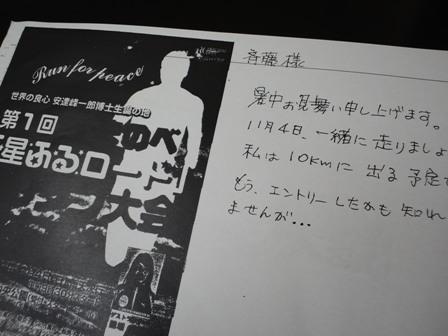 Run for peace
世界の良心 安達峰一郎博士生誕の地
第1回
星ふるロード
大会
斉藤様
暑中お見舞い申し上げます。
11月4日、一緒に走りましょ
私は10kmに出る予定で
もう、エントリーしたかも知れ
ませんが…